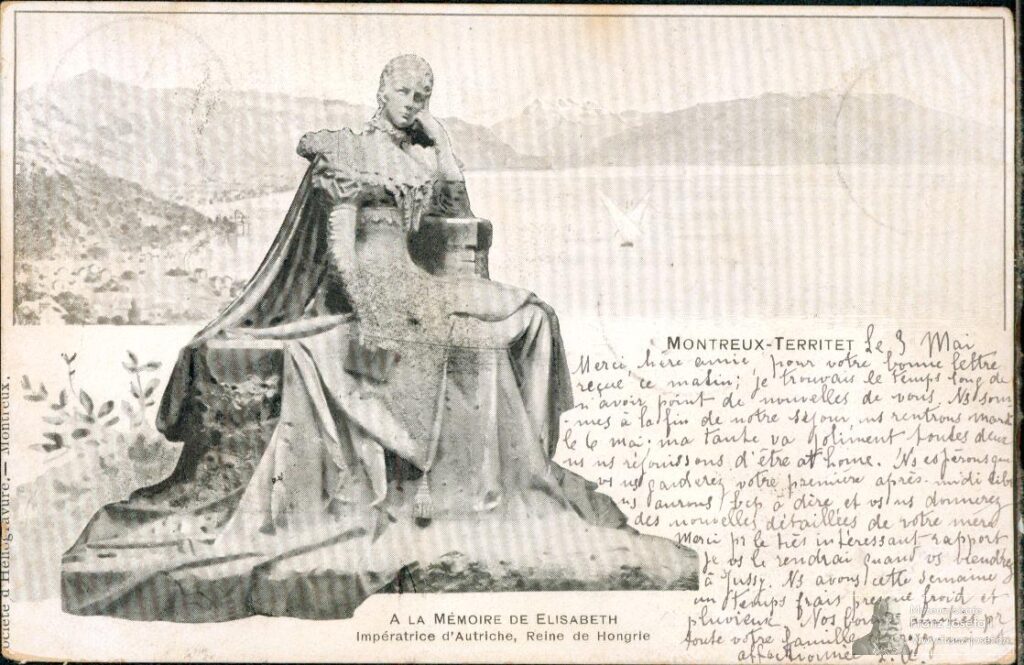 MONTREUX-TERRITET Le 3 Mai
Merci, chère amie, pour votre bonne lettre
reçue ce matin; je trouvais le temps long de
n'avoir point de nouvelles de vous. Ns som
mes à la fin de notre séjour, ns rentrons mardi
le 6 mai. ma tante va joliment toutes deux
ns ns réjouissons d'être at home. Ns espérons que
vs ns garderez votre première après-midi libre
ns aurons bcp à dire et vs ns donnerez
des nouvelles détaillées de votre mère
Merci pr le très intéressant rapport
je vs le rendrai quand vs viendrez
à Jussy. Ns avons cette semaine
un temps frais presque froid et
pluvieux. Nos
toute votre famille
affectionnée
A LA MÉMOIRE DE ELISABETH
Impératrice d'Autriche, Reine de Hongrie
Société d'Héliogravure. — Montreux.